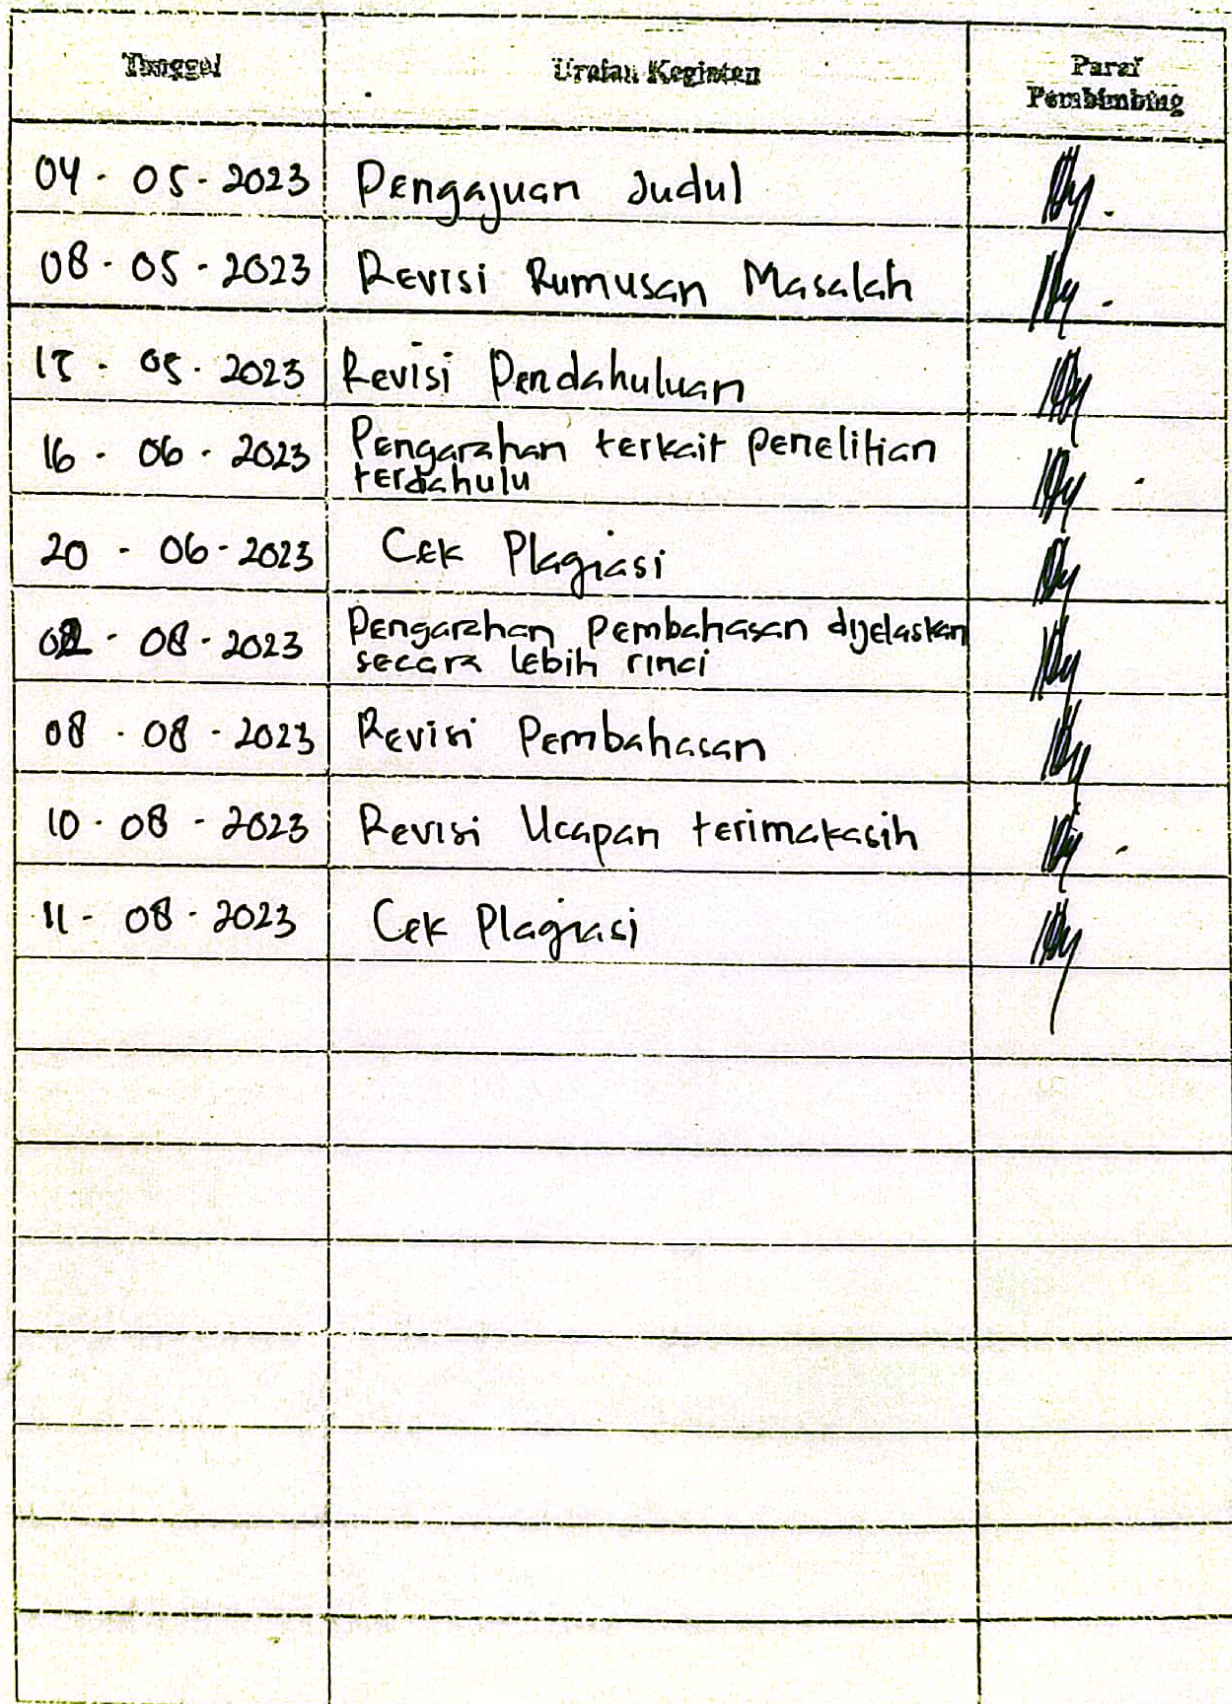 Tanggal Uraian Kegiatan Paraf
Pembimbing
04 - 05 - 2023 Pengajuan Judul
08 - 05 - 2023 Revisi Rumusan Masalah
15 - 05 - 2023 Revisi Pendahuluan
16 - 06 - 2023 Pengarahan terkait penelitian
terdahulu
20 - 06 - 2023 Cek Plagiasi
02 - 08 - 2023 Pengarahan pembahasan dijelaskan
secara lebih rinci
08 - 08 - 2023 Revisi Pembahasan
10 - 08 - 2023 Revisi Ucapan terimakasih
11 - 08 - 2023 Cek Plagiasi